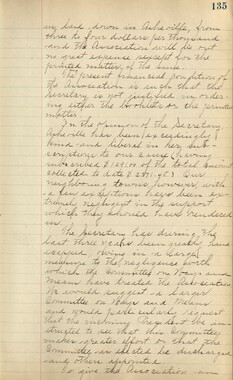 135
in, laid down in Asheville, from
three to four dollars per thousand
and the Association will be out
no great expense except for the
printed matter, of the same.
The present financial condition of
the Association is such that the
Secretary is not justified in order-
ing either the booklets or the printed
matter.
In the opinion of the Secretary
Asheville has been exceedingly
kind and liberal in her sub-
scriptions to our cause (having
subscribed of the total amount
collected to date). Our
neighboring towns however, with
a few exceptions have been ex-
tremely negligent in the support
which they should have rendered
us.
The Secretary has during the
last three years been greatly hand-
icapped owing in a large
measure to the negligence with
which the Committee on Ways and
Means have treated the Association.
He would suggest a larger
Committee on Ways and Means
and would particularly request
that the incoming President be in-
structed to see that this Committee
makes greater effort or that the
Committee as elected be discharged
and others appointed.
To give the Association an